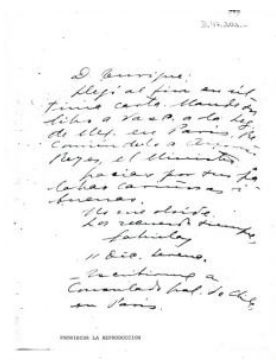 D. Enrique:
Llegó al fin en úl-
tima carta. Mande su
libro a Vasc. a la Leg.
de Mej. en París.
Reyes, el Ministro
Gracias por sus pa-
labras cariñosas i
buenas.
No me olvide.
Los recuerda siempre,
Gabriela
11 Dic.
Escribame a
Consulado Gral. de Chile,
en París.
PROHIBIDA LA REPRODUCCION